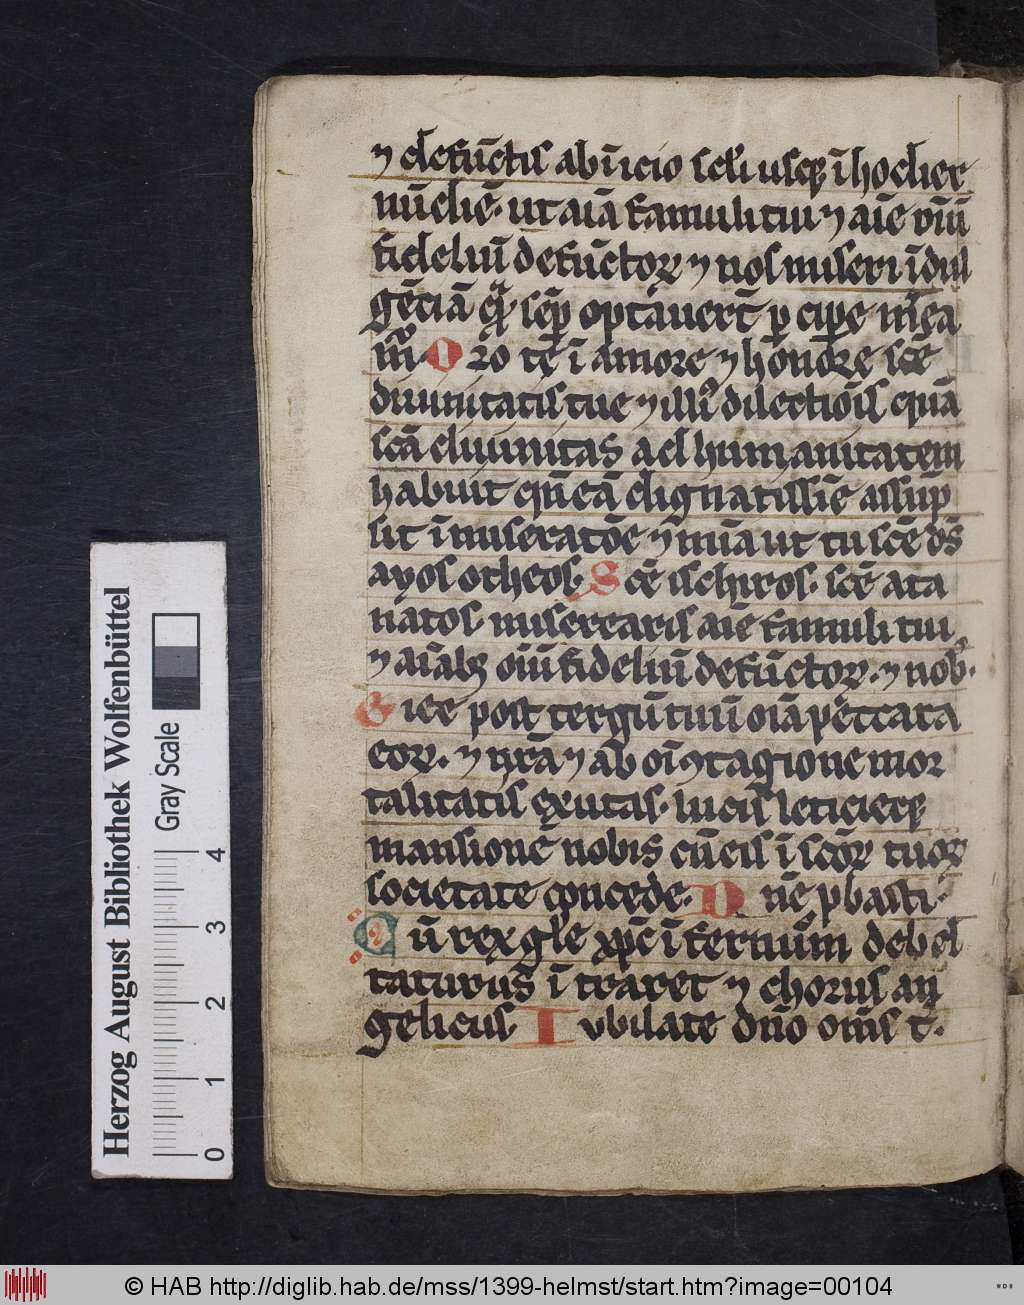 ⁊ defūctis ab īicio scl'i usq; ī hodier
nū diē. ut aīa famuli tui ⁊ aīe oīm̄
fideliū defūctoꝝ ⁊ nos miseri īdul
gēciā qͣ sēp optauert̄ ꝑcipe m̄ea
m̄r. Oro te ī amore ⁊ honore scē
diuinitatis tue ⁊ illiꝰ dilectiōis quā
scā diuinitas ad humanitatem
habuit qn̄ eā dignatissīe assūp
sit ī miseratōe ⁊ n̄ iuīa ut tu scē ds̄
ayos otheos. Scē ischiros. scē ata
natos. miserearis aīe famuli tui
⁊ aīabꝫ oīm̄ fideliū defūctoꝝ. ⁊ nobꝰ.
Eice post tergū tuū oīa peccata
eoꝝ. ⁊ nr̄a ⁊ ab oī ꝯtagione mor
talitatis exutas. lucis leticieq;
mansionē nobis cū eis ī scōꝝ tuoꝝ
societate concede. Dn̄e pbasti.
Cū rex gl'e xp̄c īfernum debel
laturus ītraret ⁊ chorus an
gelicus. Iubilate dn̄o om̄s t̄.
Herzog August Bibliothek Wolfenbüttel
Gray Scale
0 1 2 3 4
© HAB http://diglib.hab.de/mss/1399-helmst/start.htm?image=00104